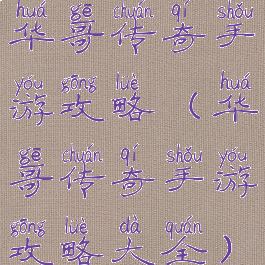 huá gē chuán qí shǒu
华哥传奇手
yóu gōng lüè huá
游攻略（华
gē chuán qí shǒu yóu
哥传奇手游
gōng lüè dà quán
攻略大全）